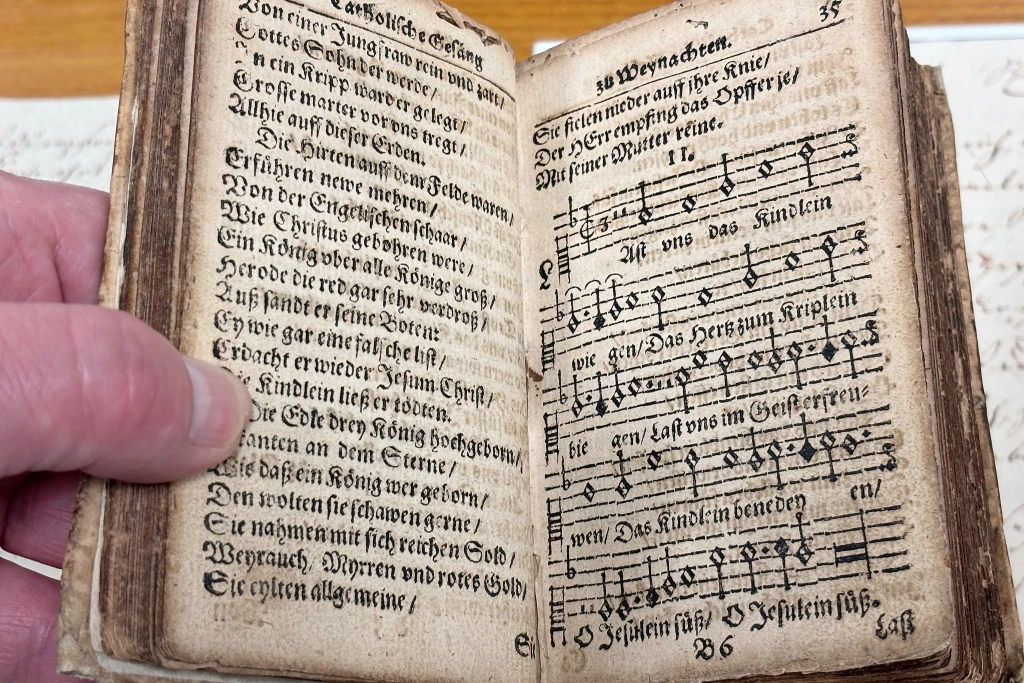 Catholische Gesäng
Von einer Jungfraw rein vnd zart/
Gottes Sohn der werde/
n ein Kripp ward er gelegt/
Grosse marter vor vns tregt/
Allhie auff dieser Erden.
Die Hirten auff dem Felde waren/
Erführen newe mehren/
Von der Engelischen schaar/
Wie Christus gebohren were/
Ein König vber alle Könige groß/
Herode die red gar sehr verdroß/
Auß sandt er seine Boten:
Ey wie gar eine falsche list/
Erdacht er wieder Jesum Christ/
Die Kindlein ließ er tödten.
Die Edle drey König hochgeborn/
kanten an dem Sterne/
Wie daß ein König wer geborn/
Den wolten sie schawen gerne/
Sie nahmen mit sich reichen Sold/
Weyrauch, Myrren vnd rotes Gold/
Sie eylten allgemeine/
Si
35
zu Weynachten.
Sie fielen nieder auff ihre Knie/
Der HErr empfing das Opffer je/
Mit seiner Mutter reine.
II.
LAst vns das Kindlein
wie gen/ Das Hertz zum Kriplein
bie gen/ Last vns im Geist erfreu-
wen/ Das Kindlein benedey en/
O Jesulein süß/ O Jesulein süß.
B 6
Last